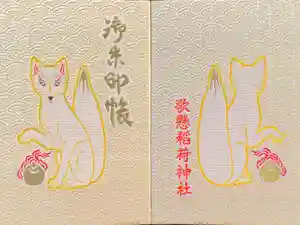 御朱印帳
歌懸稲荷神社